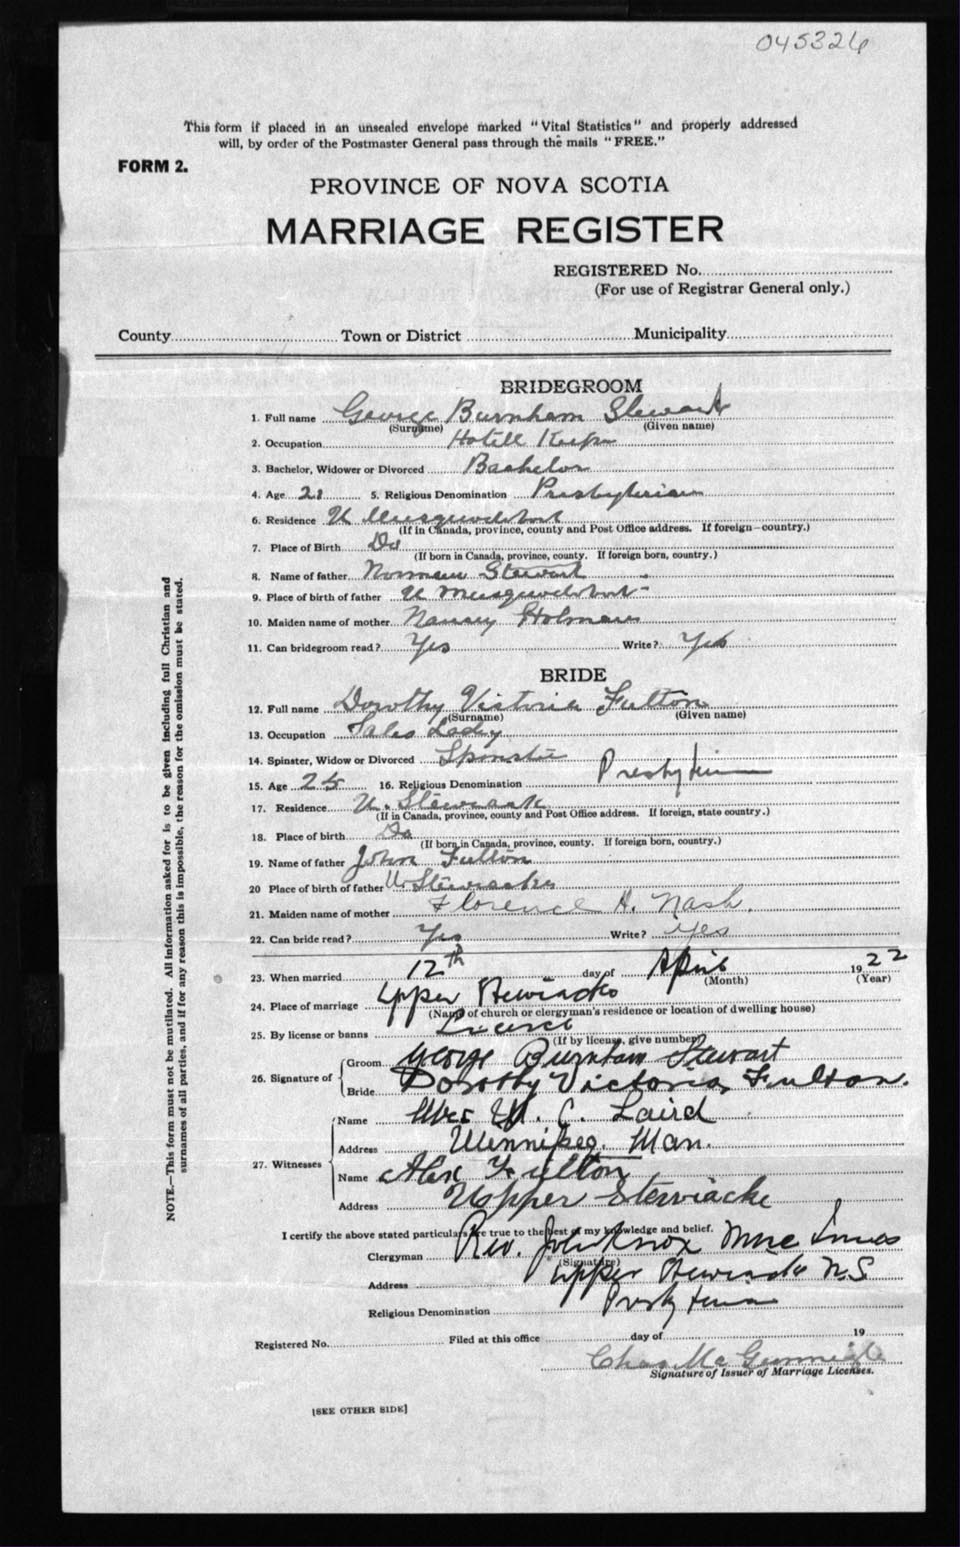 045326
This form if placed in an unsealed envelope marked "Vital Statistics" and properly addressed
will, by order of the Postmaster General pass through the mails "FREE."
FORM 2.
PROVINCE OF NOVA SCOTIA
MARRIAGE REGISTER
REGISTERED No.
(For use of Registrar General only.)
County Town or District Municipality
BRIDEGROOM
1. Full name George Burnham Stewart
(Surname) (Given name)
2. Occupation Hotell Keeper
3. Bachelor, Widower or Divorced Bachelor
4. Age 21 5. Religious Denomination Presbyterian
6. Residence U Musquodoboit
(If in Canada, province, county and Post Office address. If foreign—country.)
7. Place of Birth Do
(If born in Canada, province, county. If foreign born, country.)
8. Name of father Norman Stewart
9. Place of birth of father U Musquodoboit
10. Maiden name of mother Holman
11. Can bridegroom read? Yes Write? Yes
BRIDE
12. Full name Dorothy Victoria Fulton
(Surname) (Given name)
13. Occupation Sales Lady
14. Spinster, Widow or Divorced Spinster
15. Age 25 16. Religious Denomination Presbyterian
17. Residence U. Stewiacke
(If in Canada, province, county and Post Office address. If foreign, state country.)
18. Place of birth Do
(If born in Canada, province, county. If foreign born, country.)
19. Name of father John Fulton
20 Place of birth of father U. Stewiacke
21. Maiden name of mother Florence H. Nash.
22. Can bride read? Yes Write? Yes
23. When married 12th day of April 1922
(Month) (Year)
24. Place of marriage Upper Stewiacke
(Name of church or clergyman's residence or location of dwelling house)
25. By license or banns License
(If by license, give number)
26. Signature of Groom George Burnham Stewart
Bride Dorothy Victoria Fulton.
27. Witnesses Name Mrs C. Laird
Address Winnipeg. Man.
Name Alex Fulton
Address Upper Stewiacke
I certify the above stated particulars are true to the best of my knowledge and belief.
Clergyman Rev. John Knox MacInnes
(Signature)
Address Upper Stewiacke N.S.
Religious Denomination Presbyterian
Registered No. Filed at this office day of 19
Chas.
Signature of Issuer of Marriage Licenses.
[SEE OTHER SIDE]
NOTE.—This form must not be mutilated. All information asked for is to be given including full Christian and
surnames of all parties, and if for any reason this is impossible, the reason for the omission must be stated.